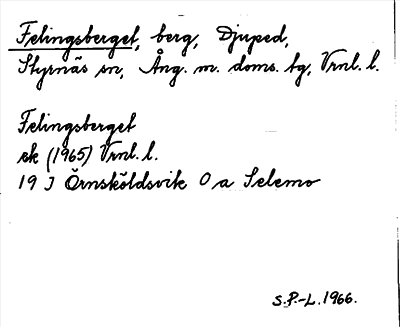 Felingsberget, berg, Djuped,
Styrnäs sn, Ång. m. doms. tg, Vrnl. l.
Felingsberget
ek (1965) Vrnl. l.
19 J Örnsköldsvik O a Selemo
S.P.-L. 1966.